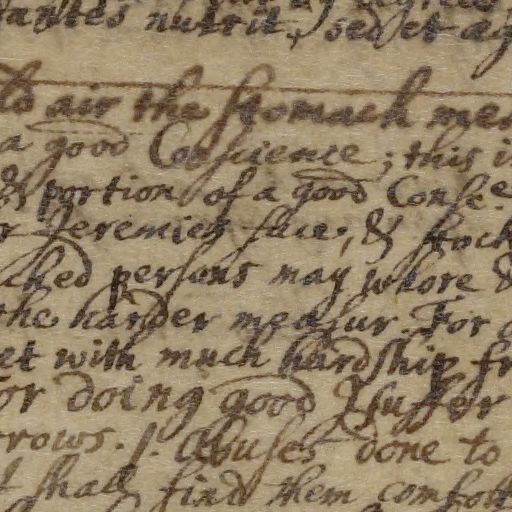 nutrit, sed et
to air the stomach
a good Conscience; this
& portion of a good Conse
Jeremies face; & stock
persons may whore &
the harder measur. For
et with much hardship fr
or doing good I suffer
rrows. /. Abuses done to
shall find them comfort